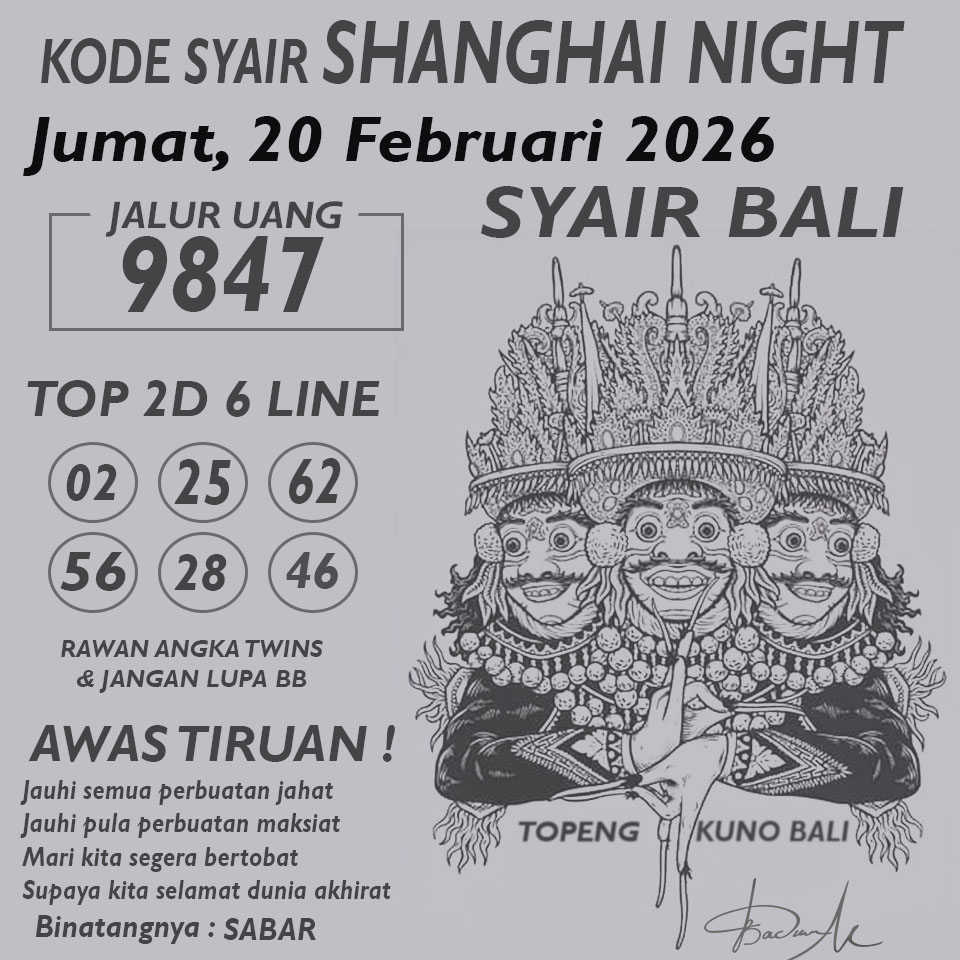 KODE SYAIR SHANGHAI NIGHT
Jumat, 20 Februari 2026
SYAIR BALI
JALUR UANG
9847
TOP 2D 6 LINE
02 25 62
56 28 46
RAWAN ANGKA TWINS
& JANGAN LUPA BB
AWAS TIRUAN !
Jauhi semua perbuatan jahat
Jauhi pula perbuatan maksiat
Mari kita segera bertobat
Supaya kita selamat dunia akhirat
Binatangnya : SABAR
TOPENG KUNO BALI